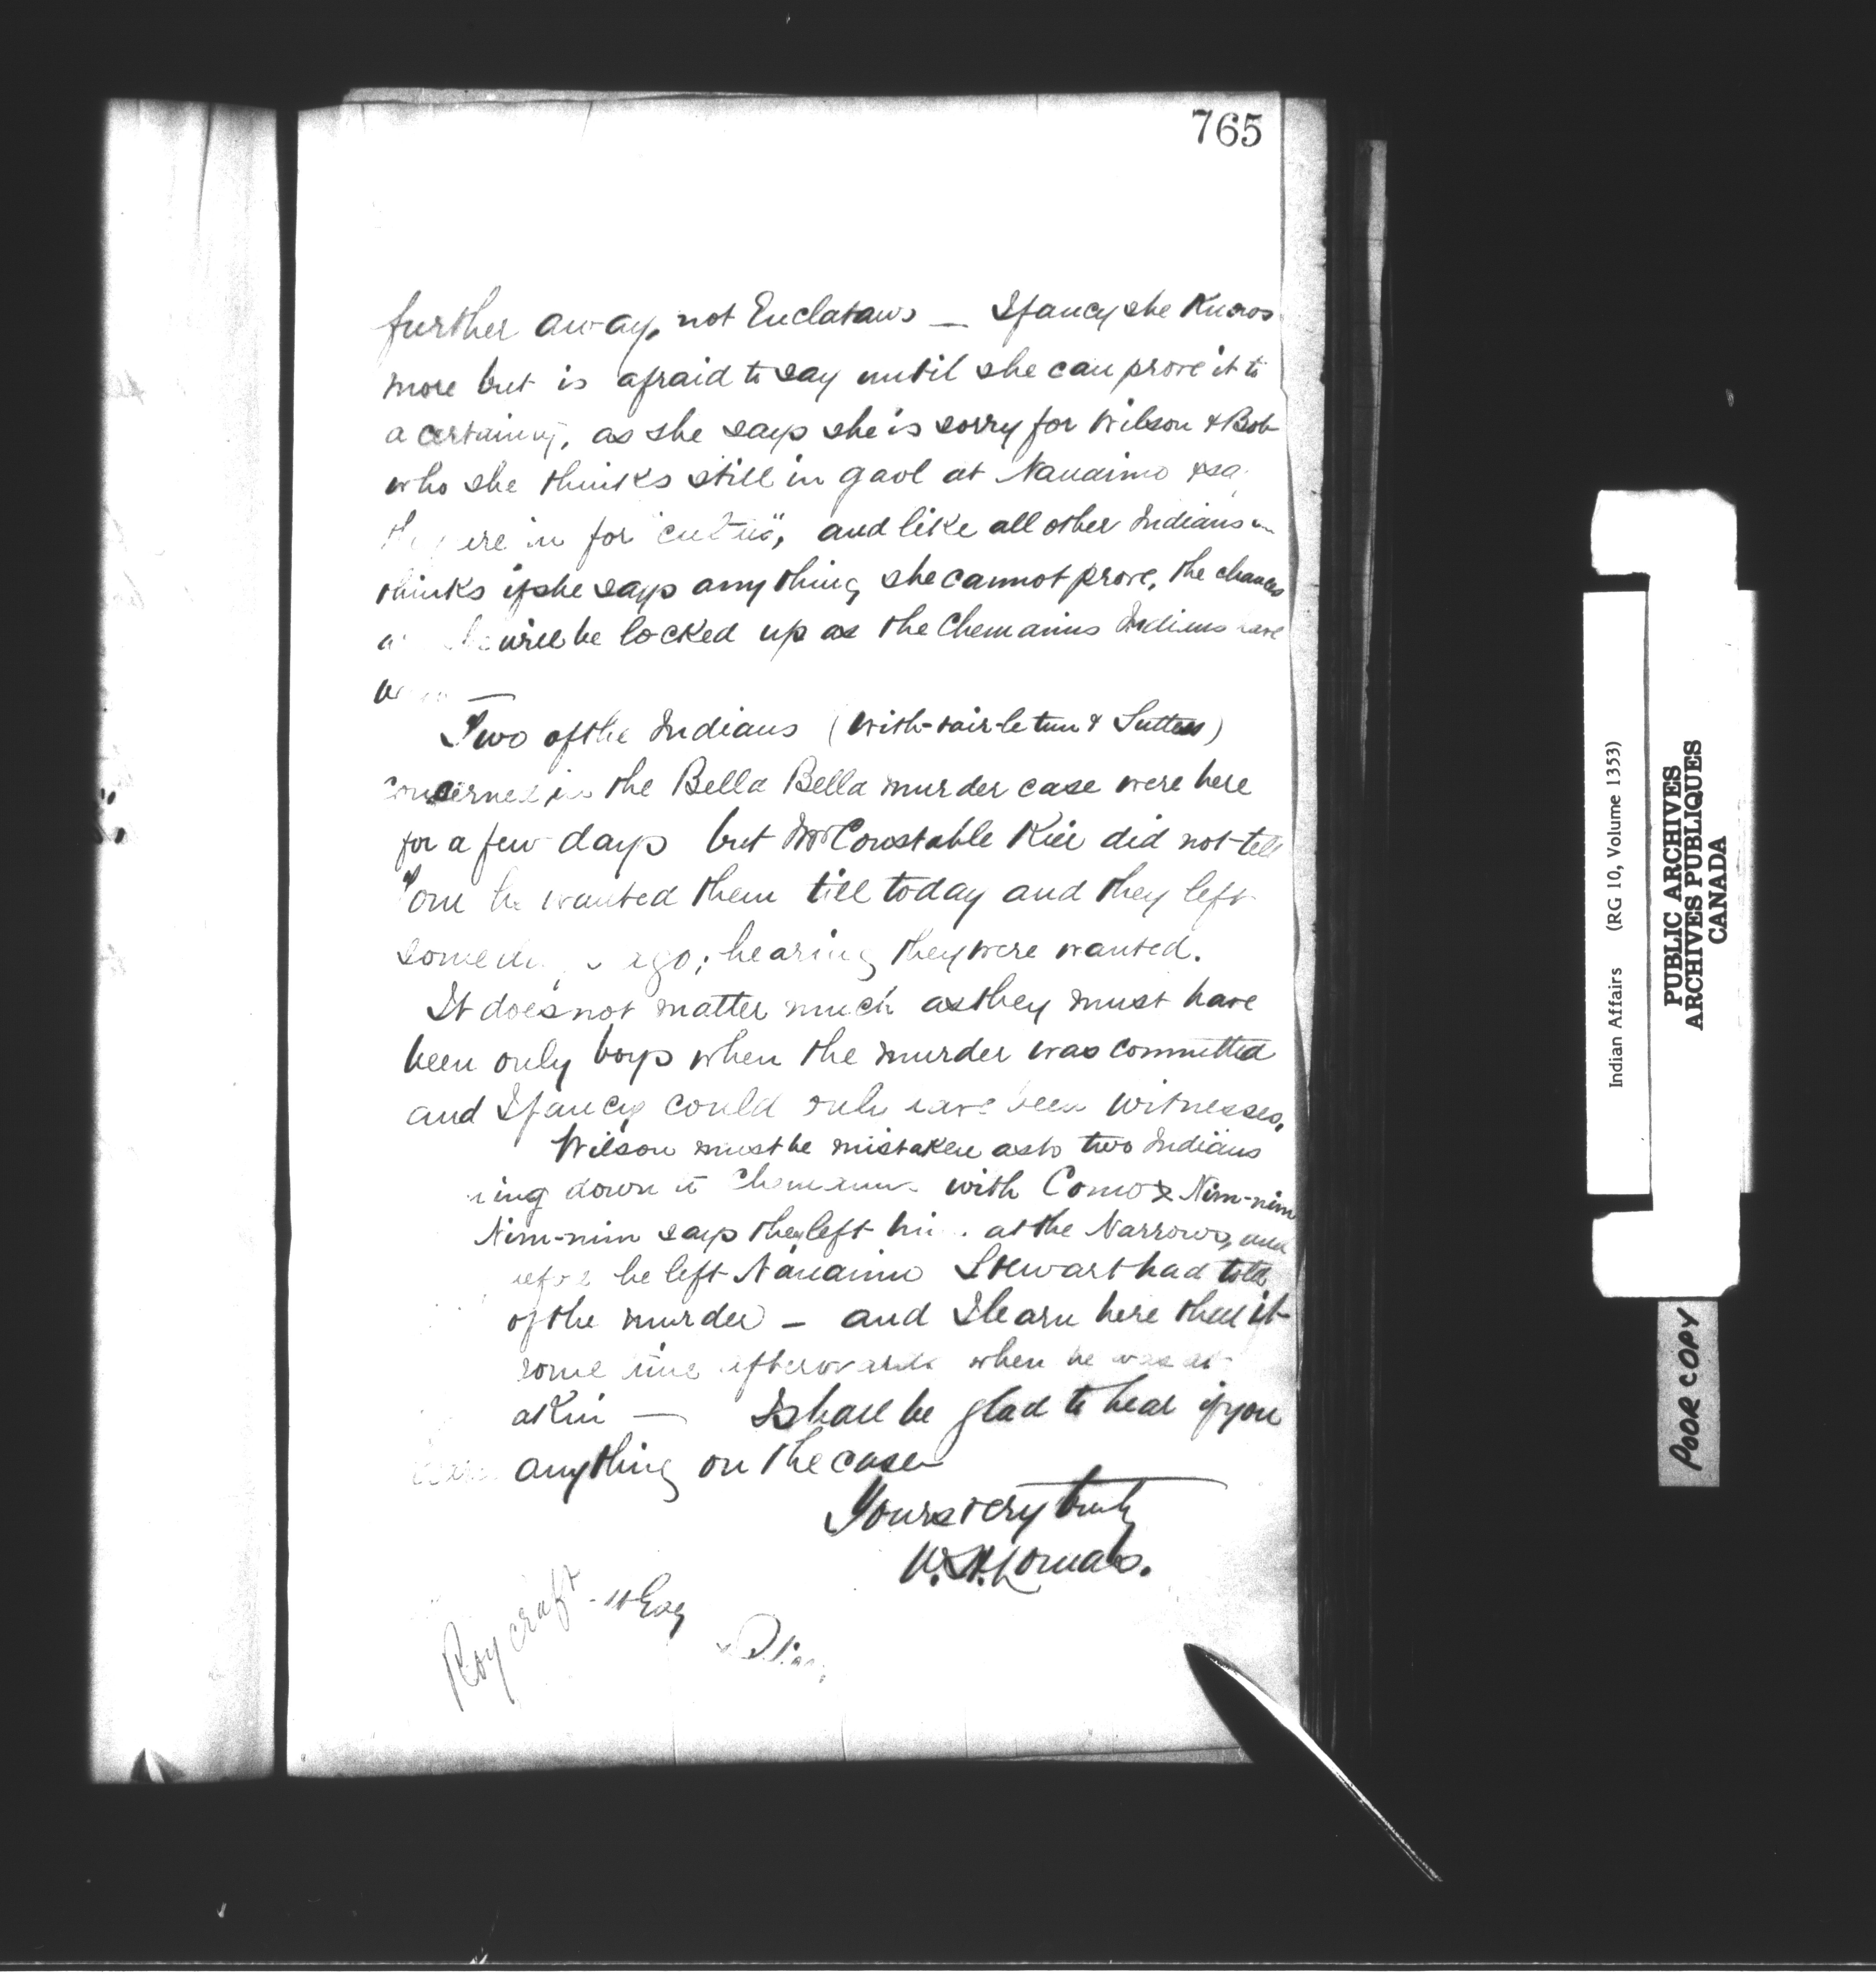 765
further away, not Euclataws — I fancy she knows
more but is afraid to say until she can prove it to
a certainty, as she says she is sorry for Wilson & Bob
who she thinks still in gaol at Nanaimo
in for and like all other Indians
thinks if she says anything she cannot prove, the chances
will be locked up as the Chemainus Indians have
Two of the Indians (
concerned in the Bella Bella murder case were here
for a few days but Constable did not tell
he wanted them till today and they left
some ago; hearing they were wanted.
It does not matter much as they must have
been only boys when the murder was committed
and I fancy could only have been witnesses.
Wilson must be mistaken as to two Indians
down to Chemainus with Como & Nim-nim
Nim-nim says they left at the Narrows, and
he left Nanaimo Stewart had told
of the murder — and I learn here that it
some time afterwards when he was at
— I shall be glad to hear if you
anything on the case
Yours very truly
W. H. Lomas.
Roycraft Esq
Indian Affairs (RG 10, Volume 1353)
PUBLIC ARCHIVES
ARCHIVES PUBLIQUES
CANADA
POOR COPY